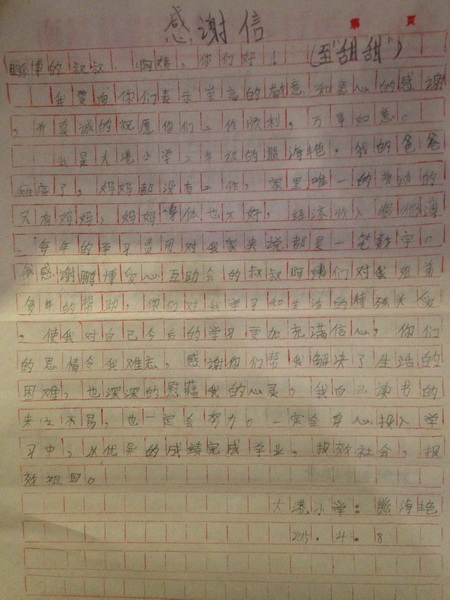 第 页
感谢信
(至"甜甜")
鹏博的叔叔、阿姨，你们好！
我要向你们表示崇高的敬意和衷心的感谢
，并真诚的祝愿你们工作顺利，万事如意。
我是大港小学二年级的熊海艳，我的爸爸
妈妈都没有工作，家里唯一的劳动的
只有妈妈，妈妈身体也不好，经济收入
每年的学习费用对我家来说都是一笔数字。
感谢鹏博爱心互助会的叔叔阿姨们对我
多年的帮助，你们对我学习和生活的关爱
，使我对自己今后的学习更加充满信心，你们
的恩情令我难忘，感谢你们帮我解决了生活的
困难，也深深的慰藉我的心灵，我明白读书的
来之不易，也一定会努力。一定会专心投入学
习中，以优异的成绩完成学业，报效社会，报
效祖国。
大港小学：熊海艳
2015.4.8